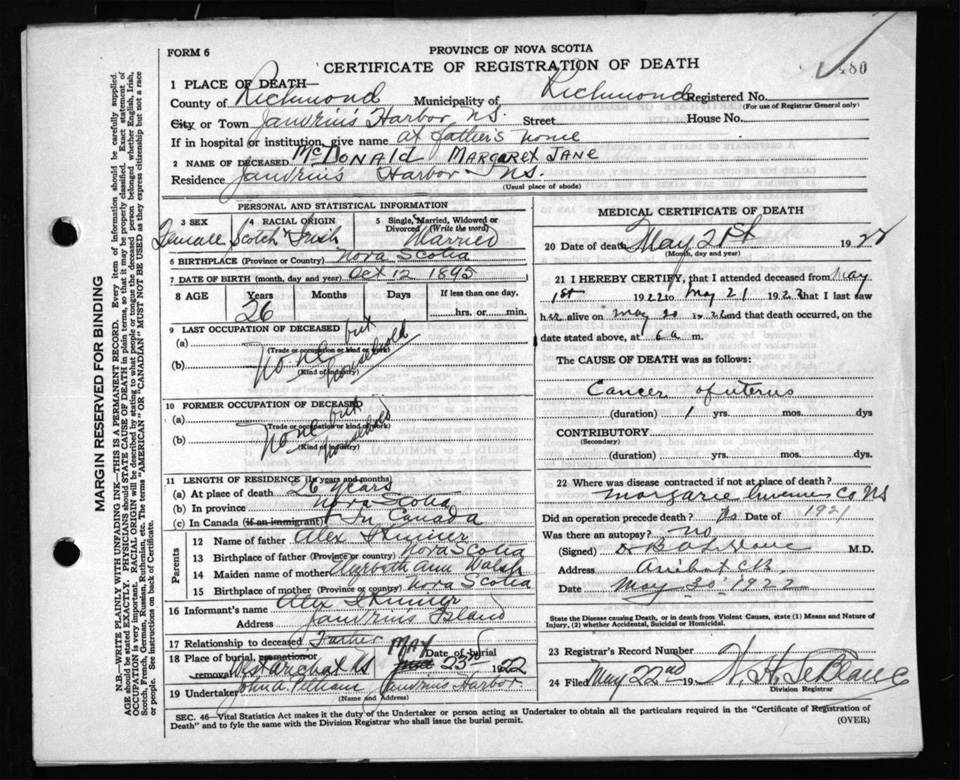 FORM 6
PROVINCE OF NOVA SCOTIA
CERTIFICATE OF REGISTRATION OF DEATH
480
1 PLACE OF DEATH—
County of Richmond Municipality of Richmond Registered No.
(For use of Registrar General only)
City or Town Janvrins Harbor N.S. Street House No.
If in hospital or institution, give name at father's home
2 NAME OF DECEASED McDonald Margaret Jane
Residence Janvrins Harbor N.S.
(Usual place of abode)
PERSONAL AND STATISTICAL INFORMATION
3 SEX 4 RACIAL ORIGIN 5 Single, Married, Widowed or Divorced (Write the word)
Female Scotch Irish Married
6 BIRTHPLACE (Province or Country) Nova Scotia
7 DATE OF BIRTH (month, day and year) Oct 12 1895
8 AGE Years Months Days If less than one day,
26 hrs. or min.
9 LAST OCCUPATION OF DECEASED
(a) None but household
(Trade or occupation or kind of work)
(b)
(Kind of industry)
10 FORMER OCCUPATION OF DECEASED
(a) None but household
(Trade or occupation or kind of work)
(b)
(Kind of industry)
11 LENGTH OF RESIDENCE (In years and months)
(a) At place of death 26 years
(b) In province Nova Scotia
(c) In Canada (if an immigrant) In Canada
Parents
12 Name of father Alex
13 Birthplace of father (Province or country) Nova Scotia
14 Maiden name of mother Ann Walsh
15 Birthplace of mother (Province or country) Nova Scotia
16 Informant's name Alex
Address Janvrins Island
17 Relationship to deceased Father
18 Place of burial, cremation or removal Date of burial
Arichat May 23rd 1922
19 Undertaker Janvrins Harbor
(Name and Address)
MEDICAL CERTIFICATE OF DEATH
20 Date of death May 21st 1922
(Month, day and year)
21 I HEREBY CERTIFY, that I attended deceased from May
1st 1922 to May 21 1922 that I last saw
her alive on May 20 1922 and that death occurred, on the
date stated above, at 6 a m.
The CAUSE OF DEATH was as follows:
Cancer of uterus
(duration) 1 yrs. mos. dys
CONTRIBUTORY
(Secondary)
(duration) yrs. mos. dys.
22 Where was disease contracted if not at place of death?
Margarie Co NS
Did an operation precede death? Date of 1921
Was there an autopsy? no
(Signed) Dr M.D.
Address
Date May 30 1922
State the Disease causing Death, or in death from Violent Causes, state (1) Means and Nature of Injury, (2) whether Accidental, Suicidal or Homicidal.
23 Registrar's Record Number
24 Filed May 22nd 19 LeBlanc
Division Registrar
SEC. 46—Vital Statistics Act makes it the duty of the Undertaker or person acting as Undertaker to obtain all the particulars required in the "Certificate of Registration of
Death" and to fyle the same with the Division Registrar who shall issue the burial permit.
(OVER)
MARGIN RESERVED FOR BINDING
N.B.—WRITE PLAINLY WITH UNFADING INK—THIS IS A PERMANENT RECORD. Every item of information should be carefully supplied.
AGE should be stated EXACTLY. PHYSICIANS should STATE CAUSE OF DEATH in plain terms, so that it may be properly classified. Exact statement of
OCCUPATION is very important. RACIAL ORIGIN will be described by stating to what people or tongue the deceased person belonged whether English, Irish,
Scotch, French, German, Russian, Ruthenian, etc. The terms "AMERICAN" OR "CANADIAN" MUST NOT BE USED as they express citizenship but not a race
or people. See instructions on back of Certificate.